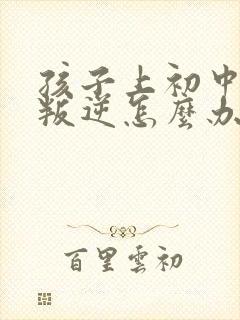 孩子上初中
叛逆怎麼办
百里雲初